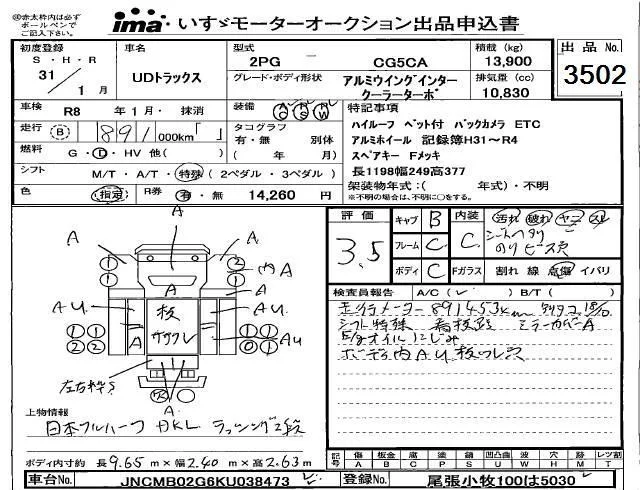 ㊟赤太枠内は必ず
ボールペンで
ご記入下さい。
ima いすゞモーターオークション出品申込書
初度登録
S・H・R
31/1月
車名
UDトラックス
型式
2PG － CG5CA
積載 (kg)
13,900
出品 No.
3502
グレード・ボディ形状
アルミウイングインター
クーラーターボ
排気量 (cc)
10,830
車検 R8 年 1 月・ 抹消
装備 AC PS PW
特記事項
ハイルーフ ベット付 バックカメラ ETC
アルミホイール 記録簿H31～R4
スペアキー Fメッキ
長1198幅249高377
走行 (B) 891,000km「 」
タコグラフ
有・無 別体
( 年 月)
燃料 G・D・HV 他( )
シフト M/T・A/T・特殊 (2ペダル・3ペダル)
架装物年式:( 年式)・不明
※不明の場合は、不明に○をする。
色 (指定) R券 有・無 14,260 円
評価
3.5
キャブ B
フレーム C
ボディ C
内装 C
汚れ 破れ ヤニ スレ
シートヘタリ
のりビース穴
Fガラス 割れ 線 点傷 イバリ
検査員報告 A/C( レ ) B/T( )
走行メーター891453km
シフト特殊 看板跡 ミラーカバーA
E/gオイルにじみ
ボーデ内AU
A
A
A
A
1
1
2
2
内A
A
A
AU
板
サクレ
AU
A
A
AU
1
1
2
2
1
1
0
1
左右枠S
A
上物情報
日本フルハーフ DKL ラッシング2段
ボディ内寸約 長9.65m×幅2.40m×高2.63m
記号
傷 板金 腐 塗 錆 凹凸曲 割 穴 跡 レンズ割
A B C P S U W H M T
車台No. JNCMB02G6KU038473 レ
登録No. 尾張小牧100は5030 レ